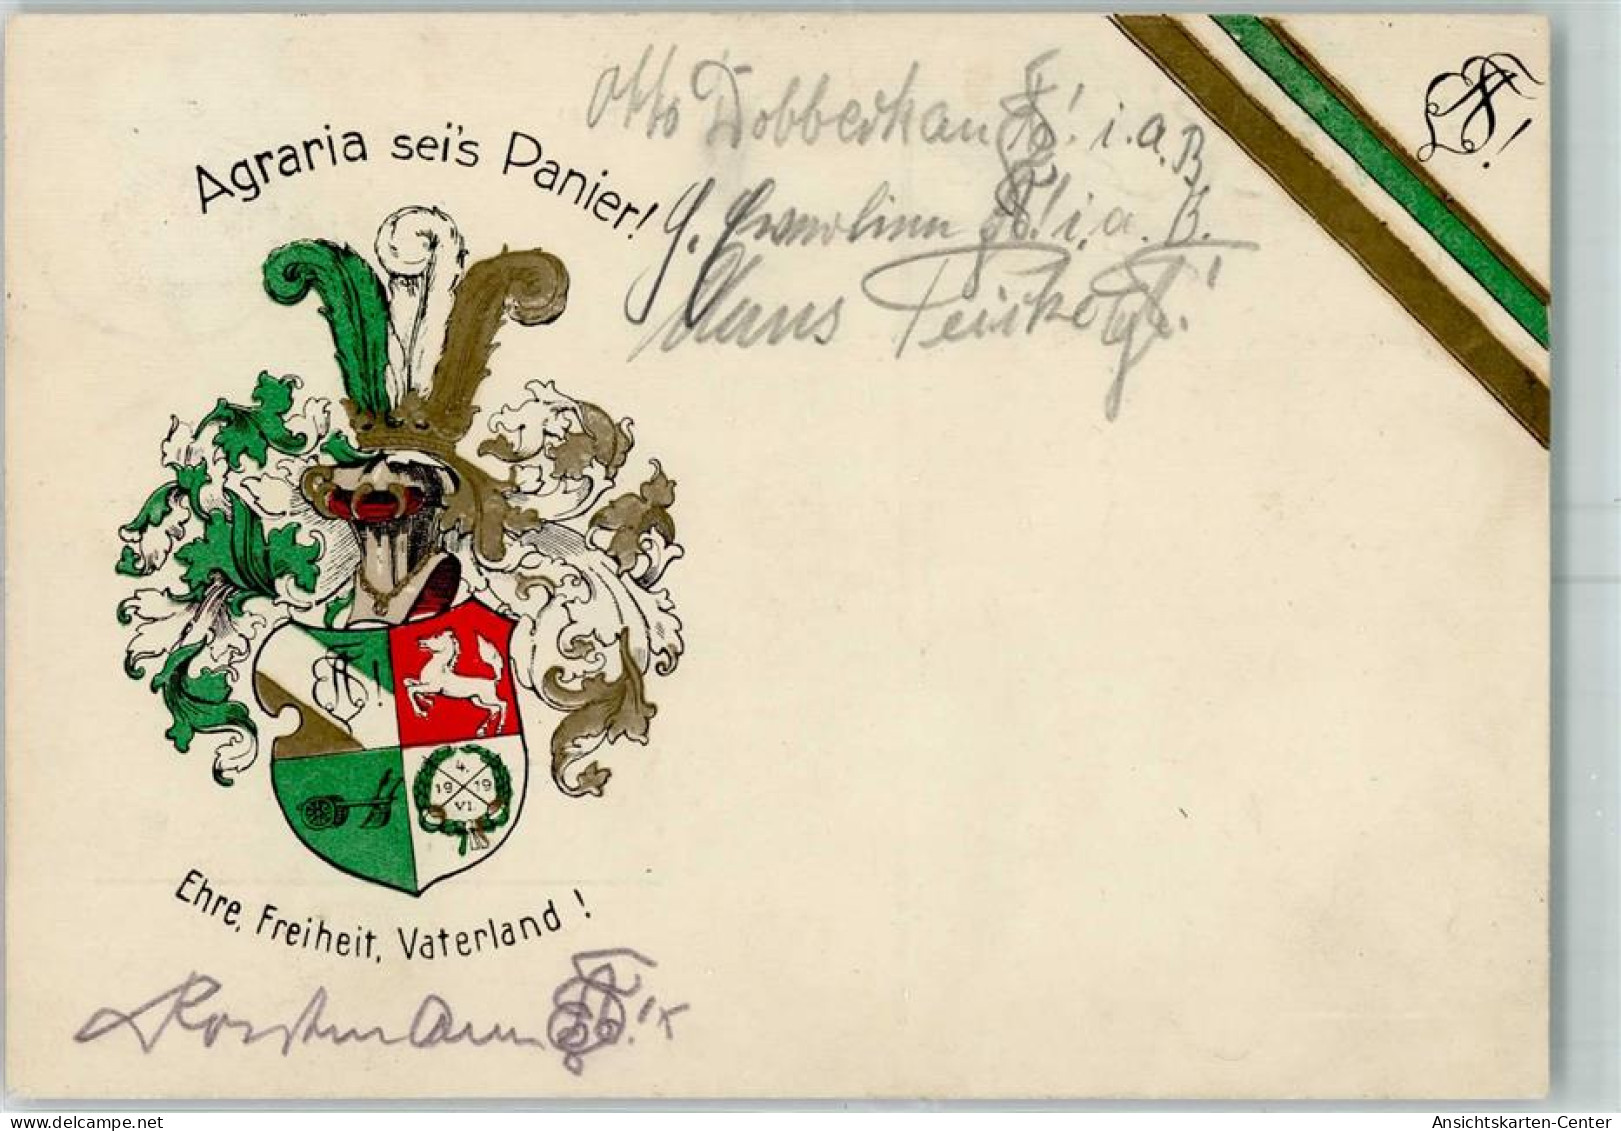 Agraria sei's Panier!
Otto Dobberkau ! i.a.B
G. ! i.a.B.
Hans !
!
!
4.
19 19
VI.
Ehre, Freiheit, Vaterland!
! x
Ansichtskarten-Center